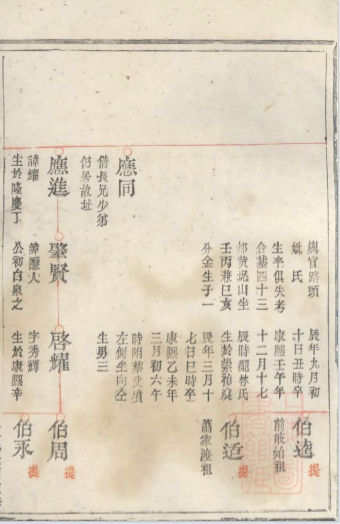 與官路頭
妣氏
生卒俱失考
合墓四十三
都黃坭山坐
壬丙兼巳亥
分金生子一
辰年九月初
十日丑時卒
康熙壬午年
十二月十七
辰時配林氏
生於
辰年三月十
七日巳時卒
康熙乙未年
三月初六午
時附葬父墳
左側坐向仝
生男三
伯逵
提
前㘵始祖
伯适
提
蕭家渡祖
應同
偕長兄少弟
仍居故址
應進
諱耀
生於隆慶丁
肇賢
公初白泉之
啓耀
字秀輝
生於康熙辛
伯周
提
伯永
提